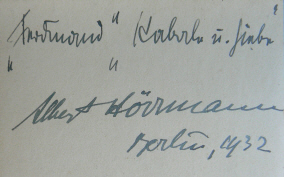 "Ferdinand" "Kabale u. Liebe"
Albert Hörrmann
Berlin, 1932